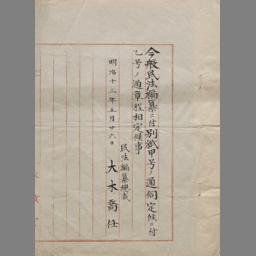 今般民法編纂ニ付別紙甲号ノ通伺定候ニ付
乙号ノ通章程相定候事
明治十三年五月廿六日
民法編纂総裁
大木喬任